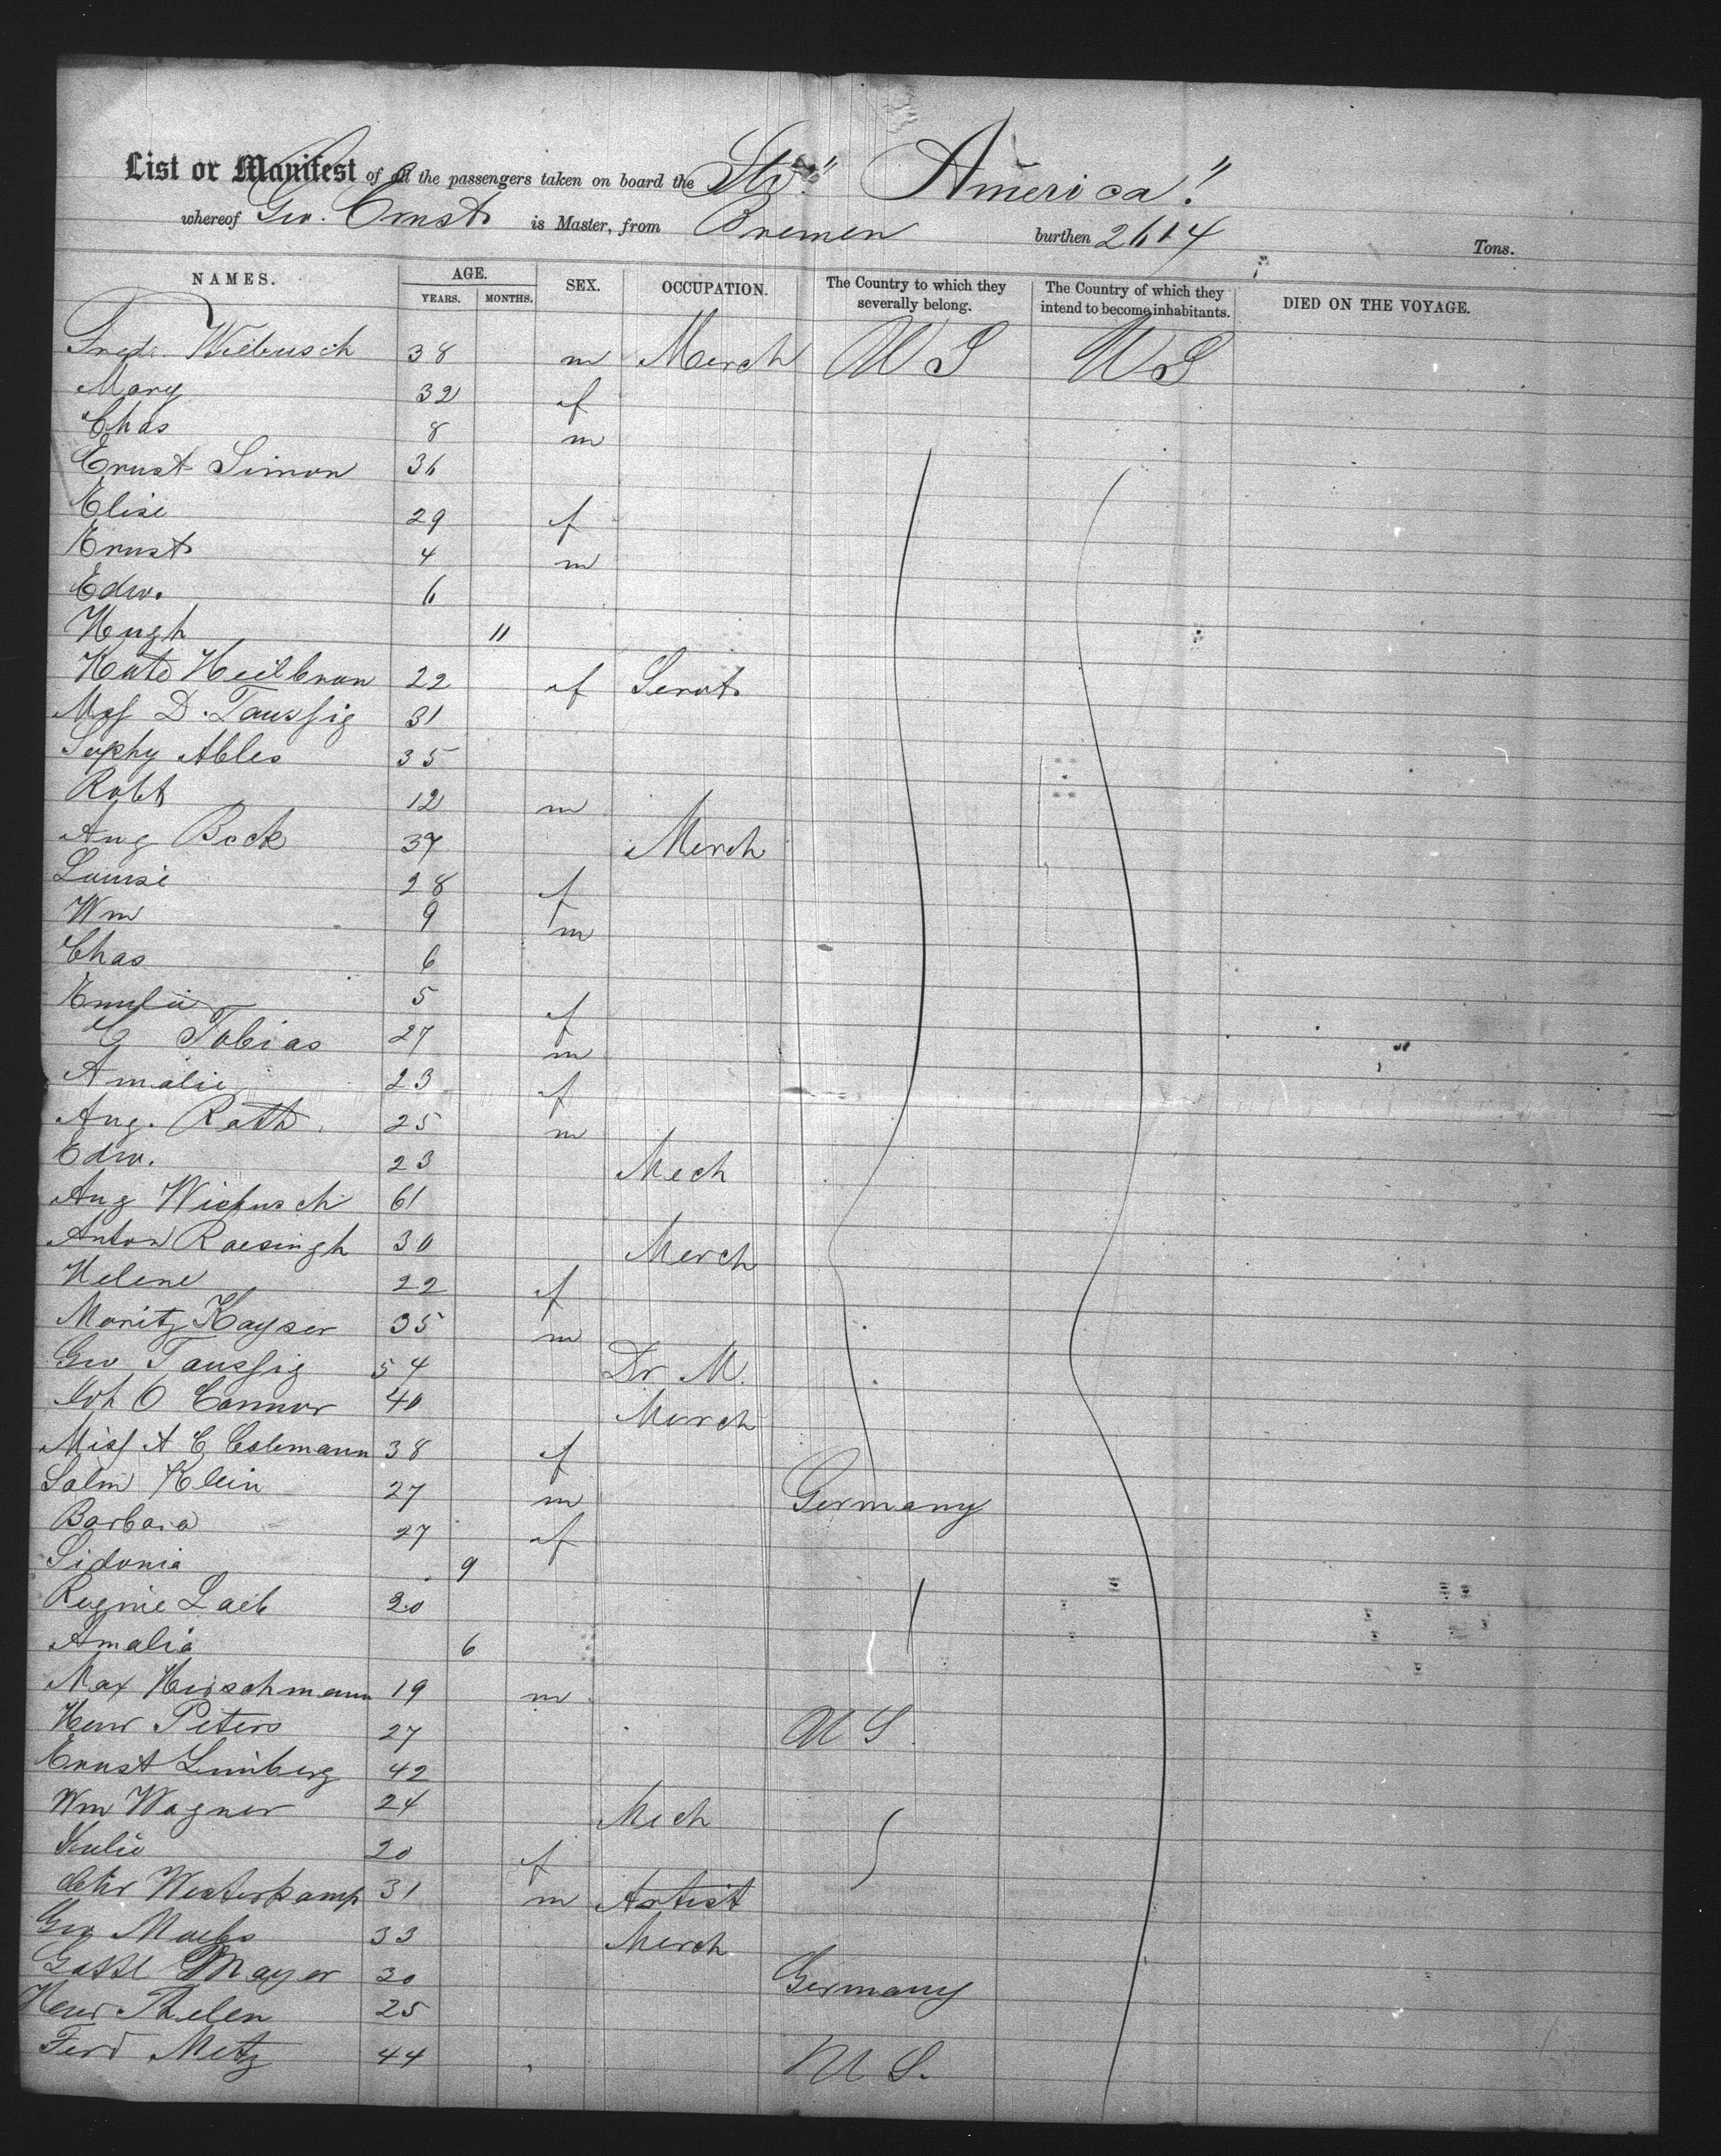 List or Manifest of all the passengers taken on board the Str. "America"
whereof Geo. Ernst is Master, from Bremen burthen 2614 Tons.
NAMES. AGE. YEARS. MONTHS. SEX. OCCUPATION. The Country to which they severally belong. The Country of which they intend to become inhabitants. DIED ON THE VOYAGE.
Fred. Wiebusch 38 m Merch U S U S
Mary 32 f
Chas 8 m
Ernst Simon 36
Elise 29 f
Ernst 4 m
Edw. 6
Hugh 11
Kate Heilbrun 22 f Servt.
D. Taussig 31
Sophy Ables 35
Robt 12 m
Aug Bock 37 Merch
Louise 28 f
Wm 9 m
Chas 6
Emilie 5 f
G Tobias 27 m
Amalie 23 f
Aug. Rath 25 m
Edw. 23 Mech
Aug Wiebusch 61
Anton Raesingh 30 Merch
Helene 22 f
Moritz Kayser 35 m
Geo Taussig 54 Dr M.
Joh O Connor 40 Merch
Miss A C Colemann 38 f
Salm Klein 27 m Germany
Barbara 27 f
Sidonia 9
Regine Laib 20
Amalia 6
Max Hirschmann 19 m
Henr Peters 27 U S.
Ernst Limberg 42
Wm Wagner 24 Mech
Julie 20 f
Westerkamp 31 m Artist
Geo Maebs 33 Merch
Mayer 30 Germany
Henr Thelen 25
Ferd Metz 44 U S.